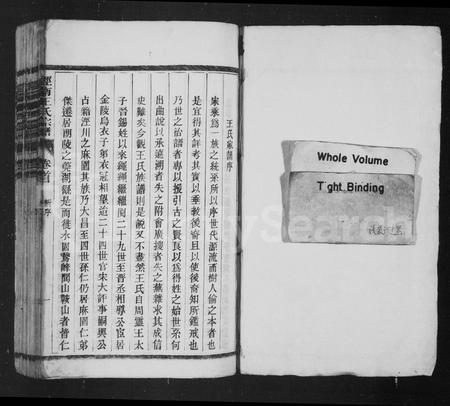 王氏家譜序
家乘為一族之統系所以序世代源流而樹人倫之本者也
是宜得其詳考其實以垂教後裔且以使後裔知所鑑戒也
乃世之治譜者專以援引古之賢良以為得姓之始世系何
出曲說以承遠溯者失之附會廣搜者失之蕪雜求其成信
史難矣今觀王氏族譜則是說又不盡然王氏自周靈王太
子晉錫姓以來繩繩繼繼閱二十九世至晉丞相導公宦居
金陵烏衣子弟衣冠相望迨二十四世官宋大評事嗣興公
占籍涇川之麻園其族乃大昌至四世孫仁
仍居麻園仁弟
傑遷居胡陵之
嶺是而後水
山鞍山者皆仁
涇南王氏宗譜
卷首
新序
Whole Volume
Tight Binding
FamilySearch